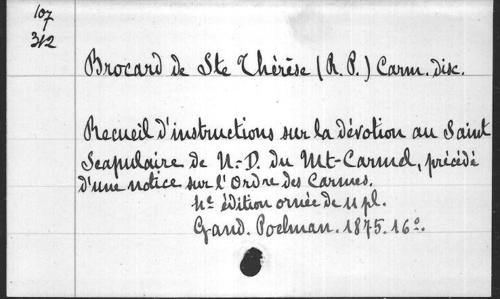 107
7
312
Brocard de Ste Thérèse (R. P.) Carm. disc.
Recueil d'instructions sur la dévotion au Saint
Scapulaire de N.-D. du Mt-Carmel, précédé
d'une notice sur l'Ordre des Carmes.
4e édition ornée de 11 pl.
Gand. Poelman. 1875. 16o.